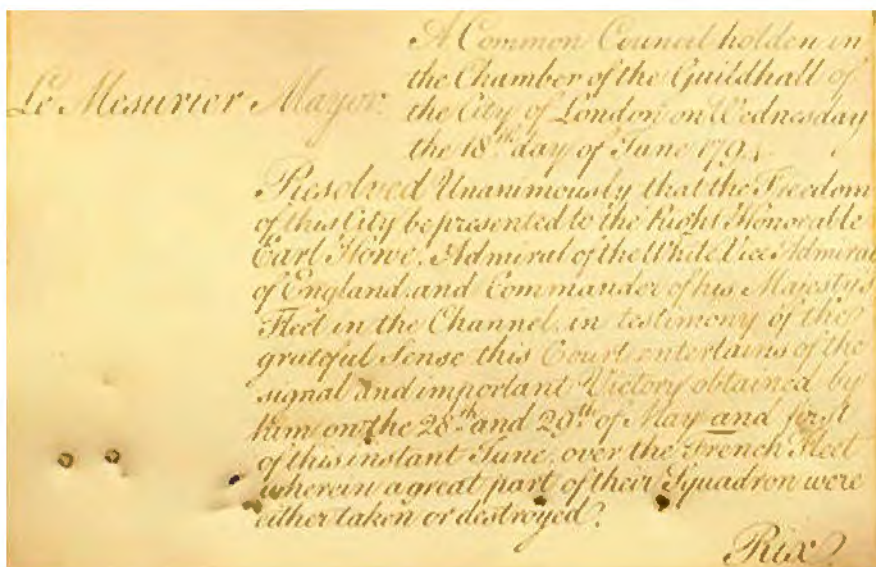 A Common Council holden in
the Chamber of the Guildhall of
Le Mesurier Mayor.
the City of London on Wednesday
the 18th day of June 1794.
Resolved Unanimously that the Freedom
of this City be presented to the Right Honorable
Earl Howe, Admiral of the White Vice Admiral
of England, and Commander of his Majesty's
Fleet in the Channel, in testimony of the
grateful Sense this Court entertains of the
signal and important Victory obtained by
him on the 28th and 29th of May and first
of this instant June, over the French Fleet
wherein a great part of their Squadron were
either taken or destroyed.
Rix